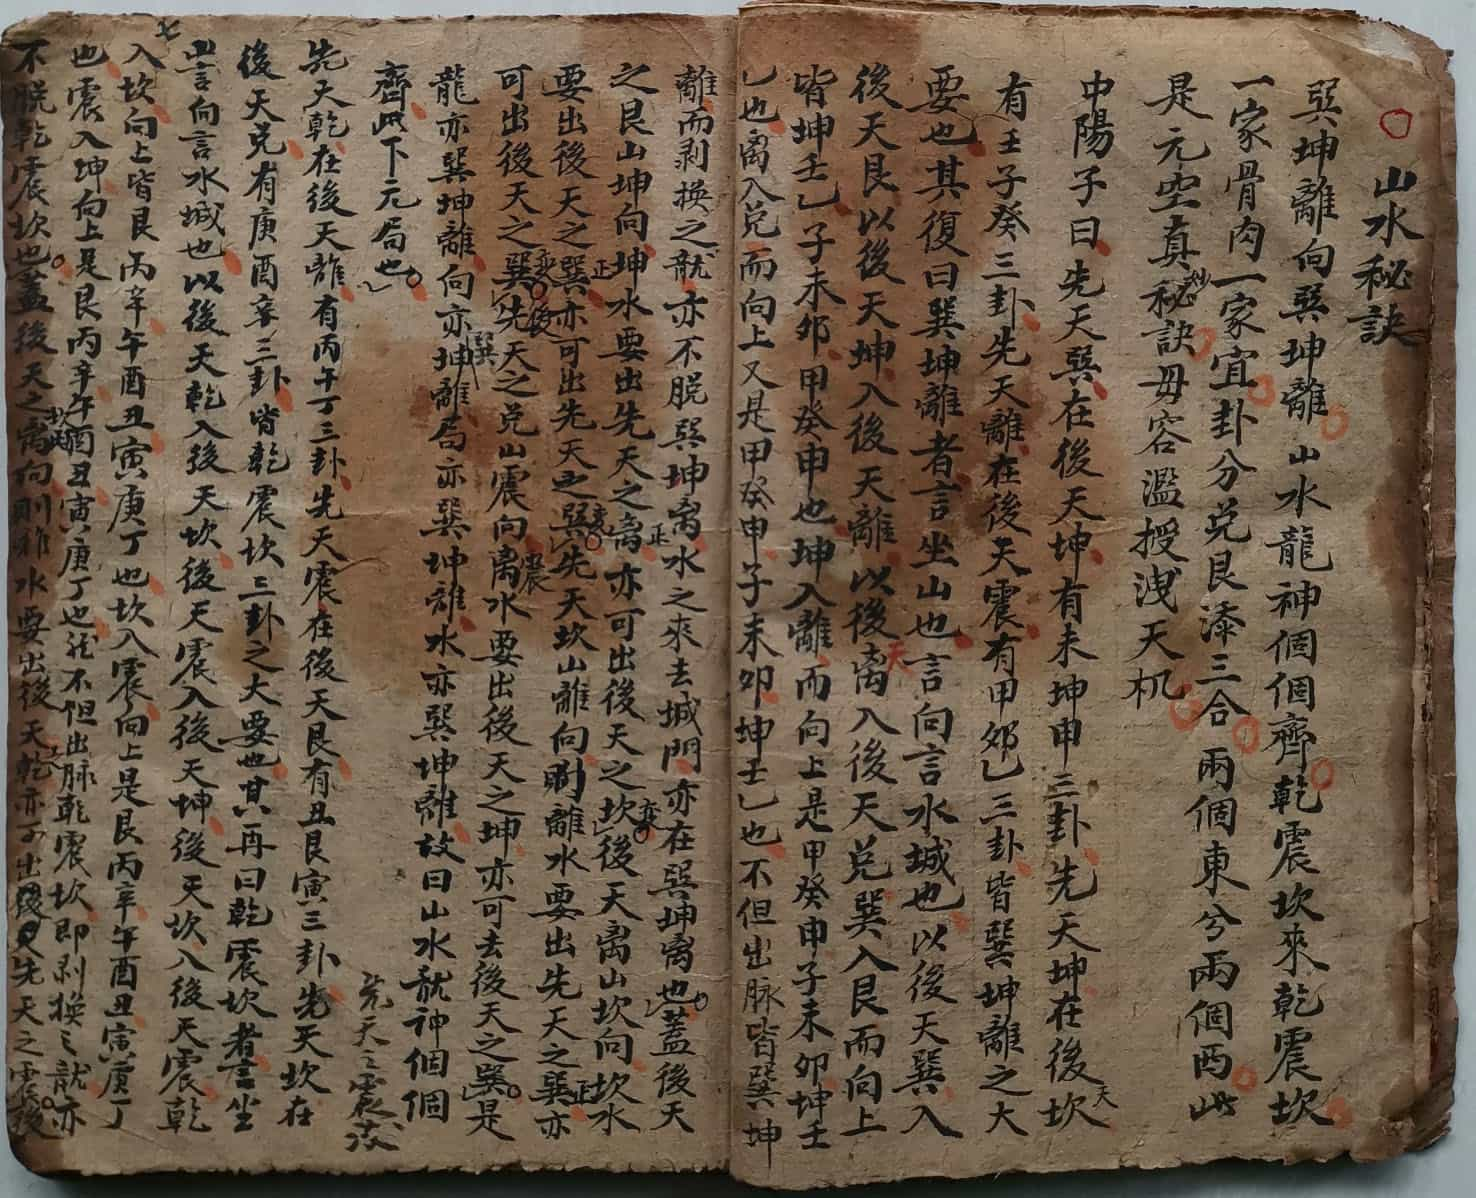 山水秘訣
巽坤離向巽坤離山水龍神個個齊乾震坎來乾震坎
一家骨肉一家宜卦分兌艮添三合兩個東兮兩個西此
是元空真秘訣毋容濫授洩天机
妙
中陽子曰先天巽在後天坤有未坤申三卦先天坤在後坎
天
有壬子癸三卦先天離在後天震有甲卯乙三卦皆巽坤離之大
要也其復曰巽坤離者言坐山也言向言水城也以後天巽入
後天艮以後天坤入後天離以後离入後天兌巽入艮而向上
天
皆坤壬乙子未卯甲癸申也坤入離而向上是甲癸申子未卯坤壬
乙也离入兌而向上又是甲癸申子未卯坤壬乙也不但出脉皆巽坤
離而剥换之龍亦不脱巽坤离水之來去城門亦在巽坤离也蓋後天
之艮山坤向坤水要出先天之离亦可出後天之坎後天离山坎向坎水
正
要出後天之巽亦可出先天之巽先天坎山離向離水要出先天之巽亦
正
可出後天之巽先天之兌山震向离水要出後天之坤亦可去後天之巽是
震
龍亦巽坤離向亦坤離局亦巽坤離水亦巽坤離故曰山水龍神個個
巽
齊此下元局也
先天乾在後天離有丙午丁三卦先天震在後天艮有丑艮寅三卦先天坎在
後天兌有庚酉辛三卦皆乾震坎三卦之大要也其再曰乾震坎者言坐
山言向言水城也以後天乾入後天坎後天震入後天坤後天坎入後天震乾
入坎向上皆艮丙辛午酉丑寅庚丁也坎入震向上是艮丙辛午酉丑寅庚丁
也震入坤向上是艮丙辛午酉丑寅庚丁也不但出脉乾震坎即剥换之龍亦
不脱乾震坎也蓋後天之离向離水要出後天乾亦可出先天之震後